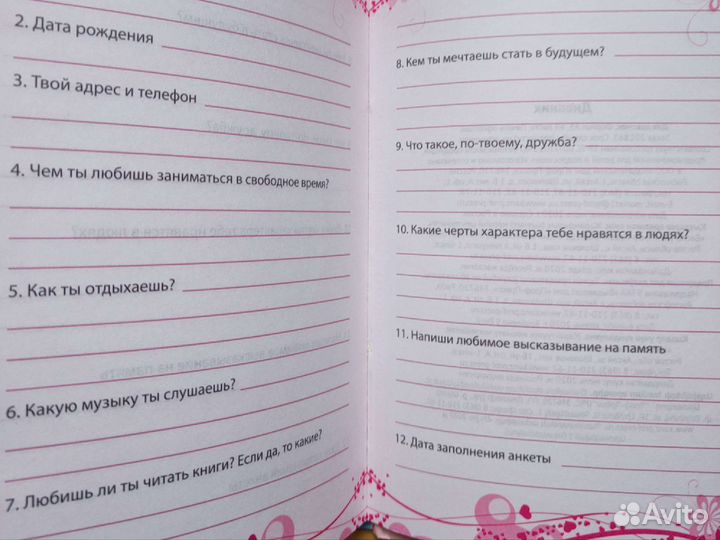 2. Дата рождения
3. Твой адрес и телефон
4. Чем ты любишь заниматься в свободное время?
5. Как ты отдыхаешь?
6. Какую музыку ты слушаешь?
7. Любишь ли ты читать книги? Если да, то какие?
8. Кем ты мечтаешь стать в будущем?
9. Что такое, по-твоему, дружба?
10. Какие черты характера тебе нравятся в людях?
11. Напиши любимое высказывание на память
12. Дата заполнения анкеты
Avito